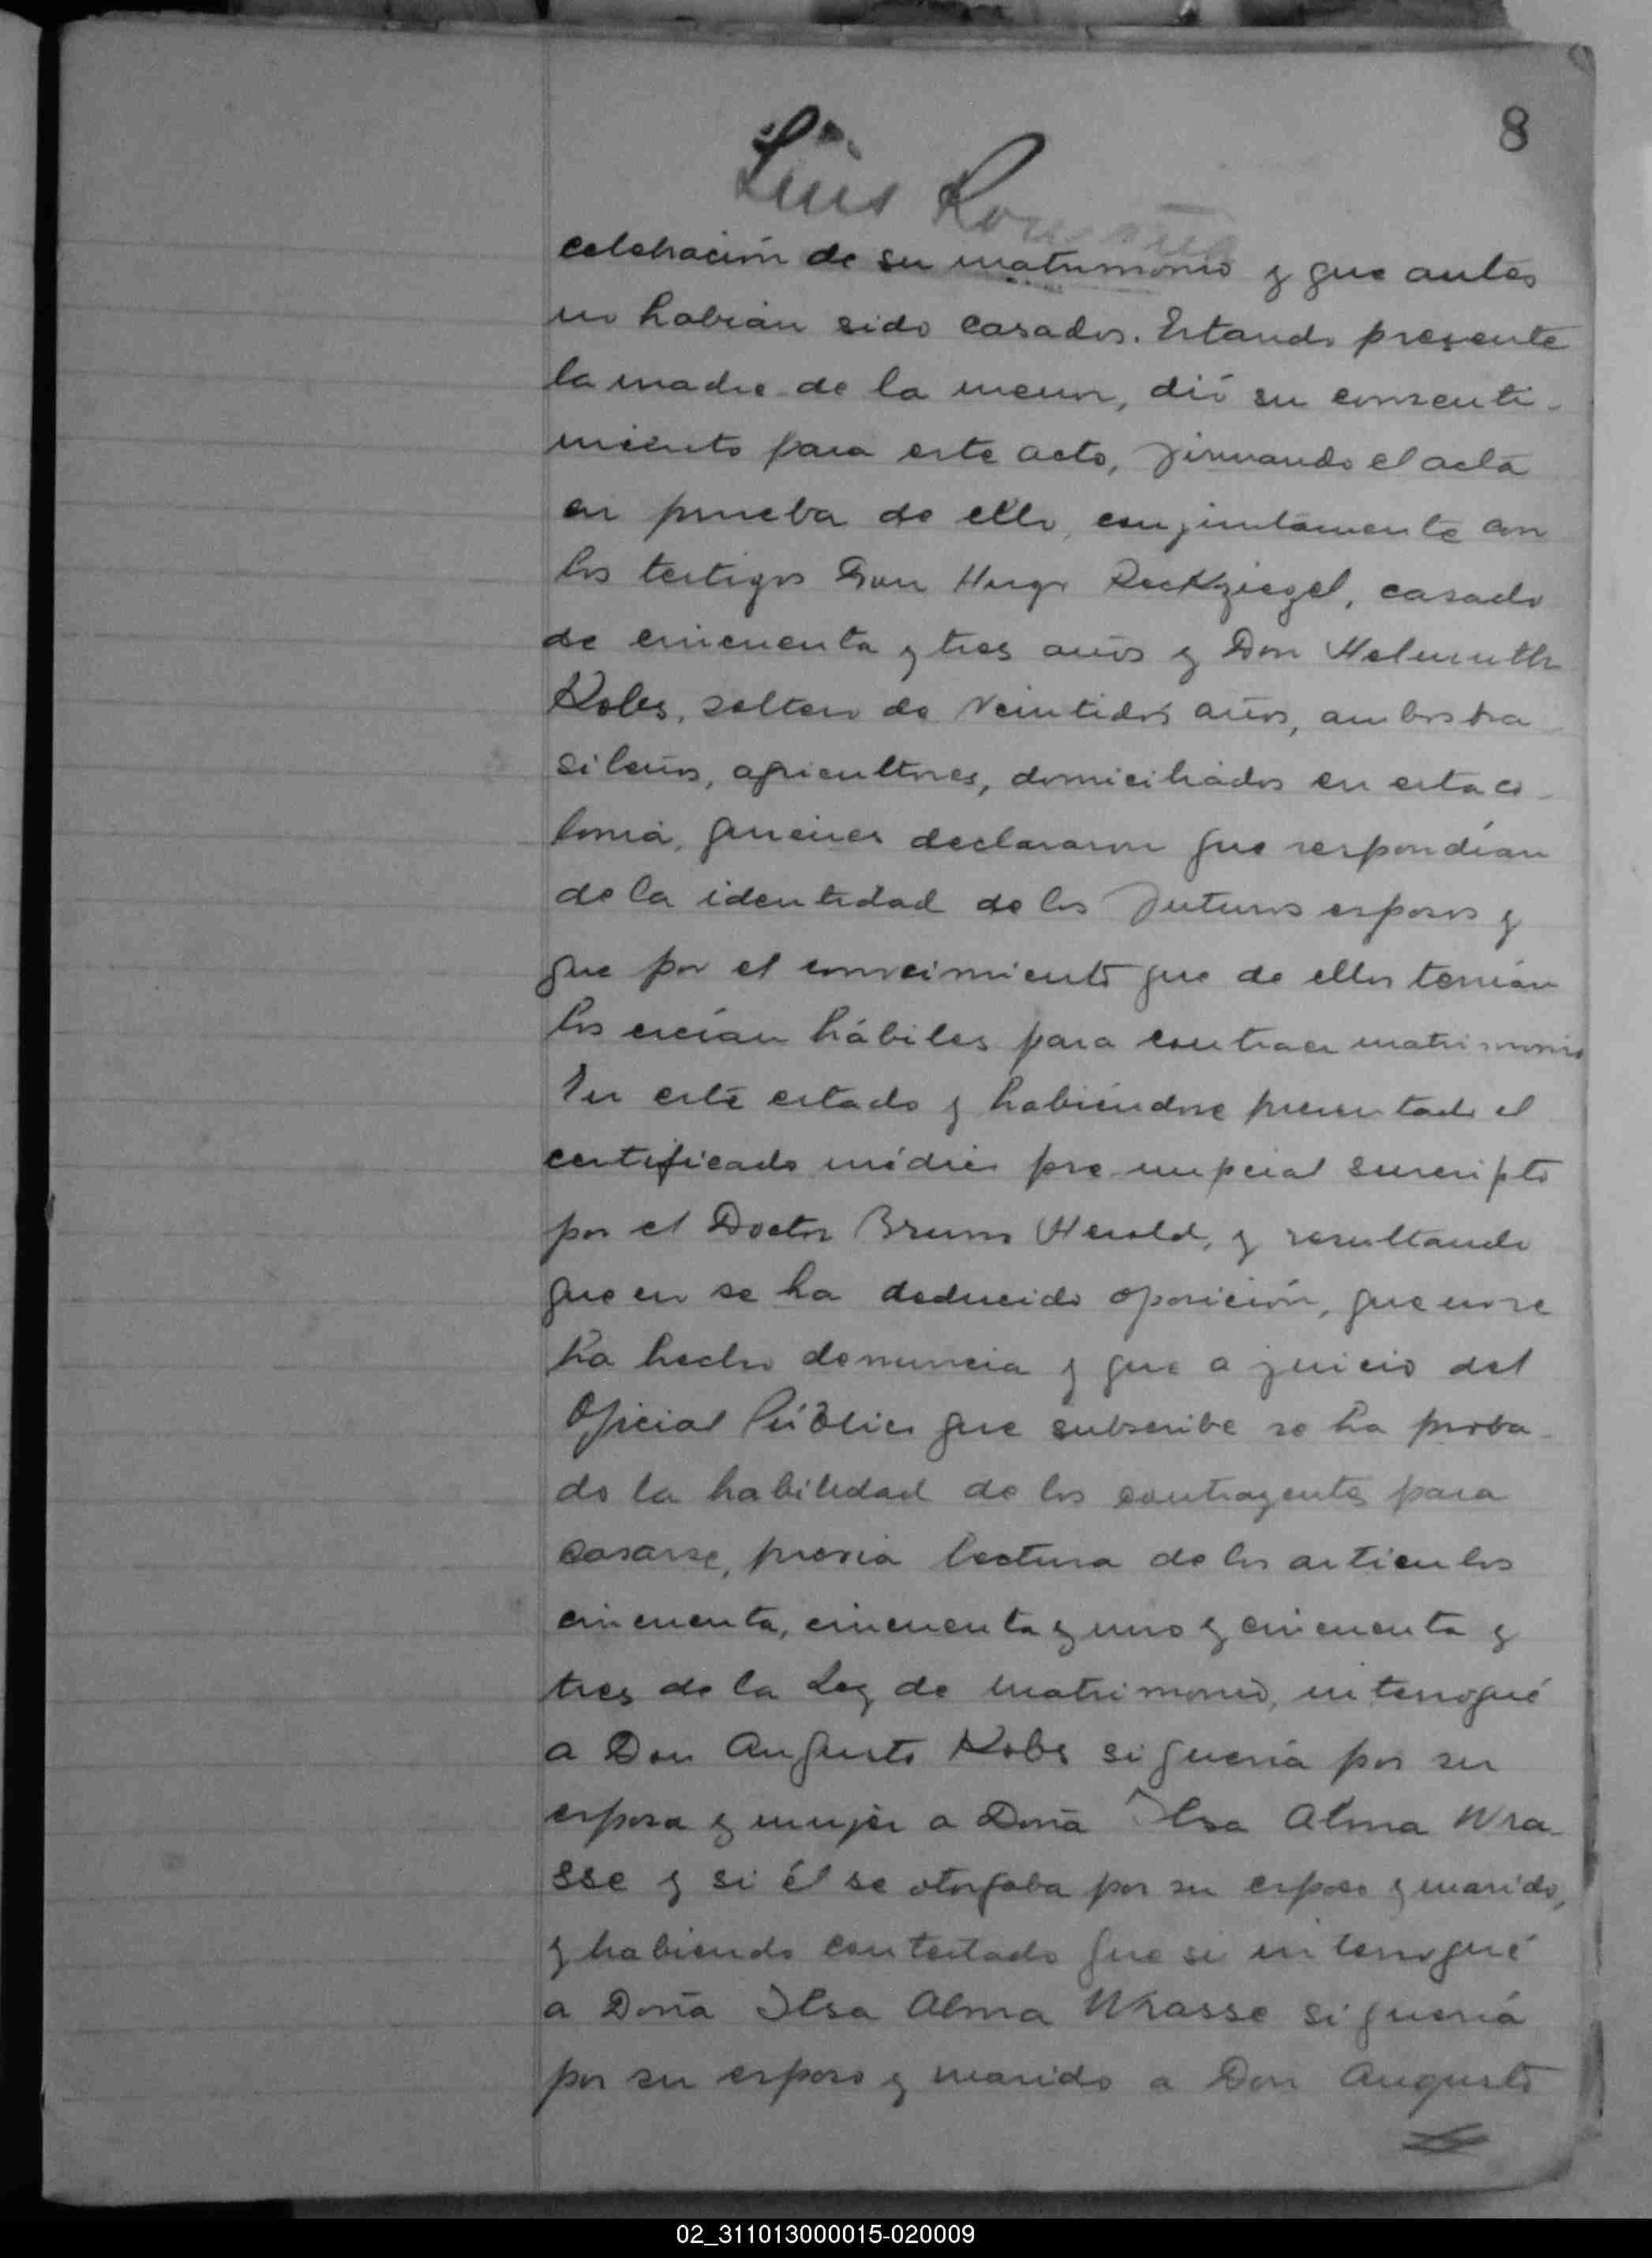 8
Luis
celebración de su matrimonio y que antes
no habían sido casados. Estando presente
la madre de la menor, dió su consenti-
miento para este acto, firmando el acta
en prueba de ello, conjuntamente con
los testigos Don Hugo Reckziegel, casado
de cincuenta y tres años y Don Helmuth
Kobs, soltero de veintidós años, ambos bra-
sileños, agricultores, domiciliados en esta co-
lonia, quienes declararon que respondían
de la identidad de los futuros esposos y
que por el conocimiento que de ellos tenían
los creían hábiles para contraer matrimonio
En este estado y habiéndose presentado el
certificado médico pre nupcial suscripto
por el Doctor Bruno Herold, y resultando
que no se ha deducido oposición, que no se
ha hecho denuncia y que a juicio del
Oficial Público que subscribe se ha proba-
do la habilidad de los contrayentes para
casarse, previa lectura de los artículos
cincuenta, cincuenta y uno y cincuenta y
tres de la Ley de Matrimonio, interrogué
a Don Augusto Kobs si quería por su
esposa y mujer a Doña Ilsa Alma Wra-
sse y si él se otorgaba por su esposo y marido,
y habiendo contestado que si interrogué
a Doña Ilsa Alma Wrasse si quería
por su esposo y marido a Don Augusto
02_311013000015-020009